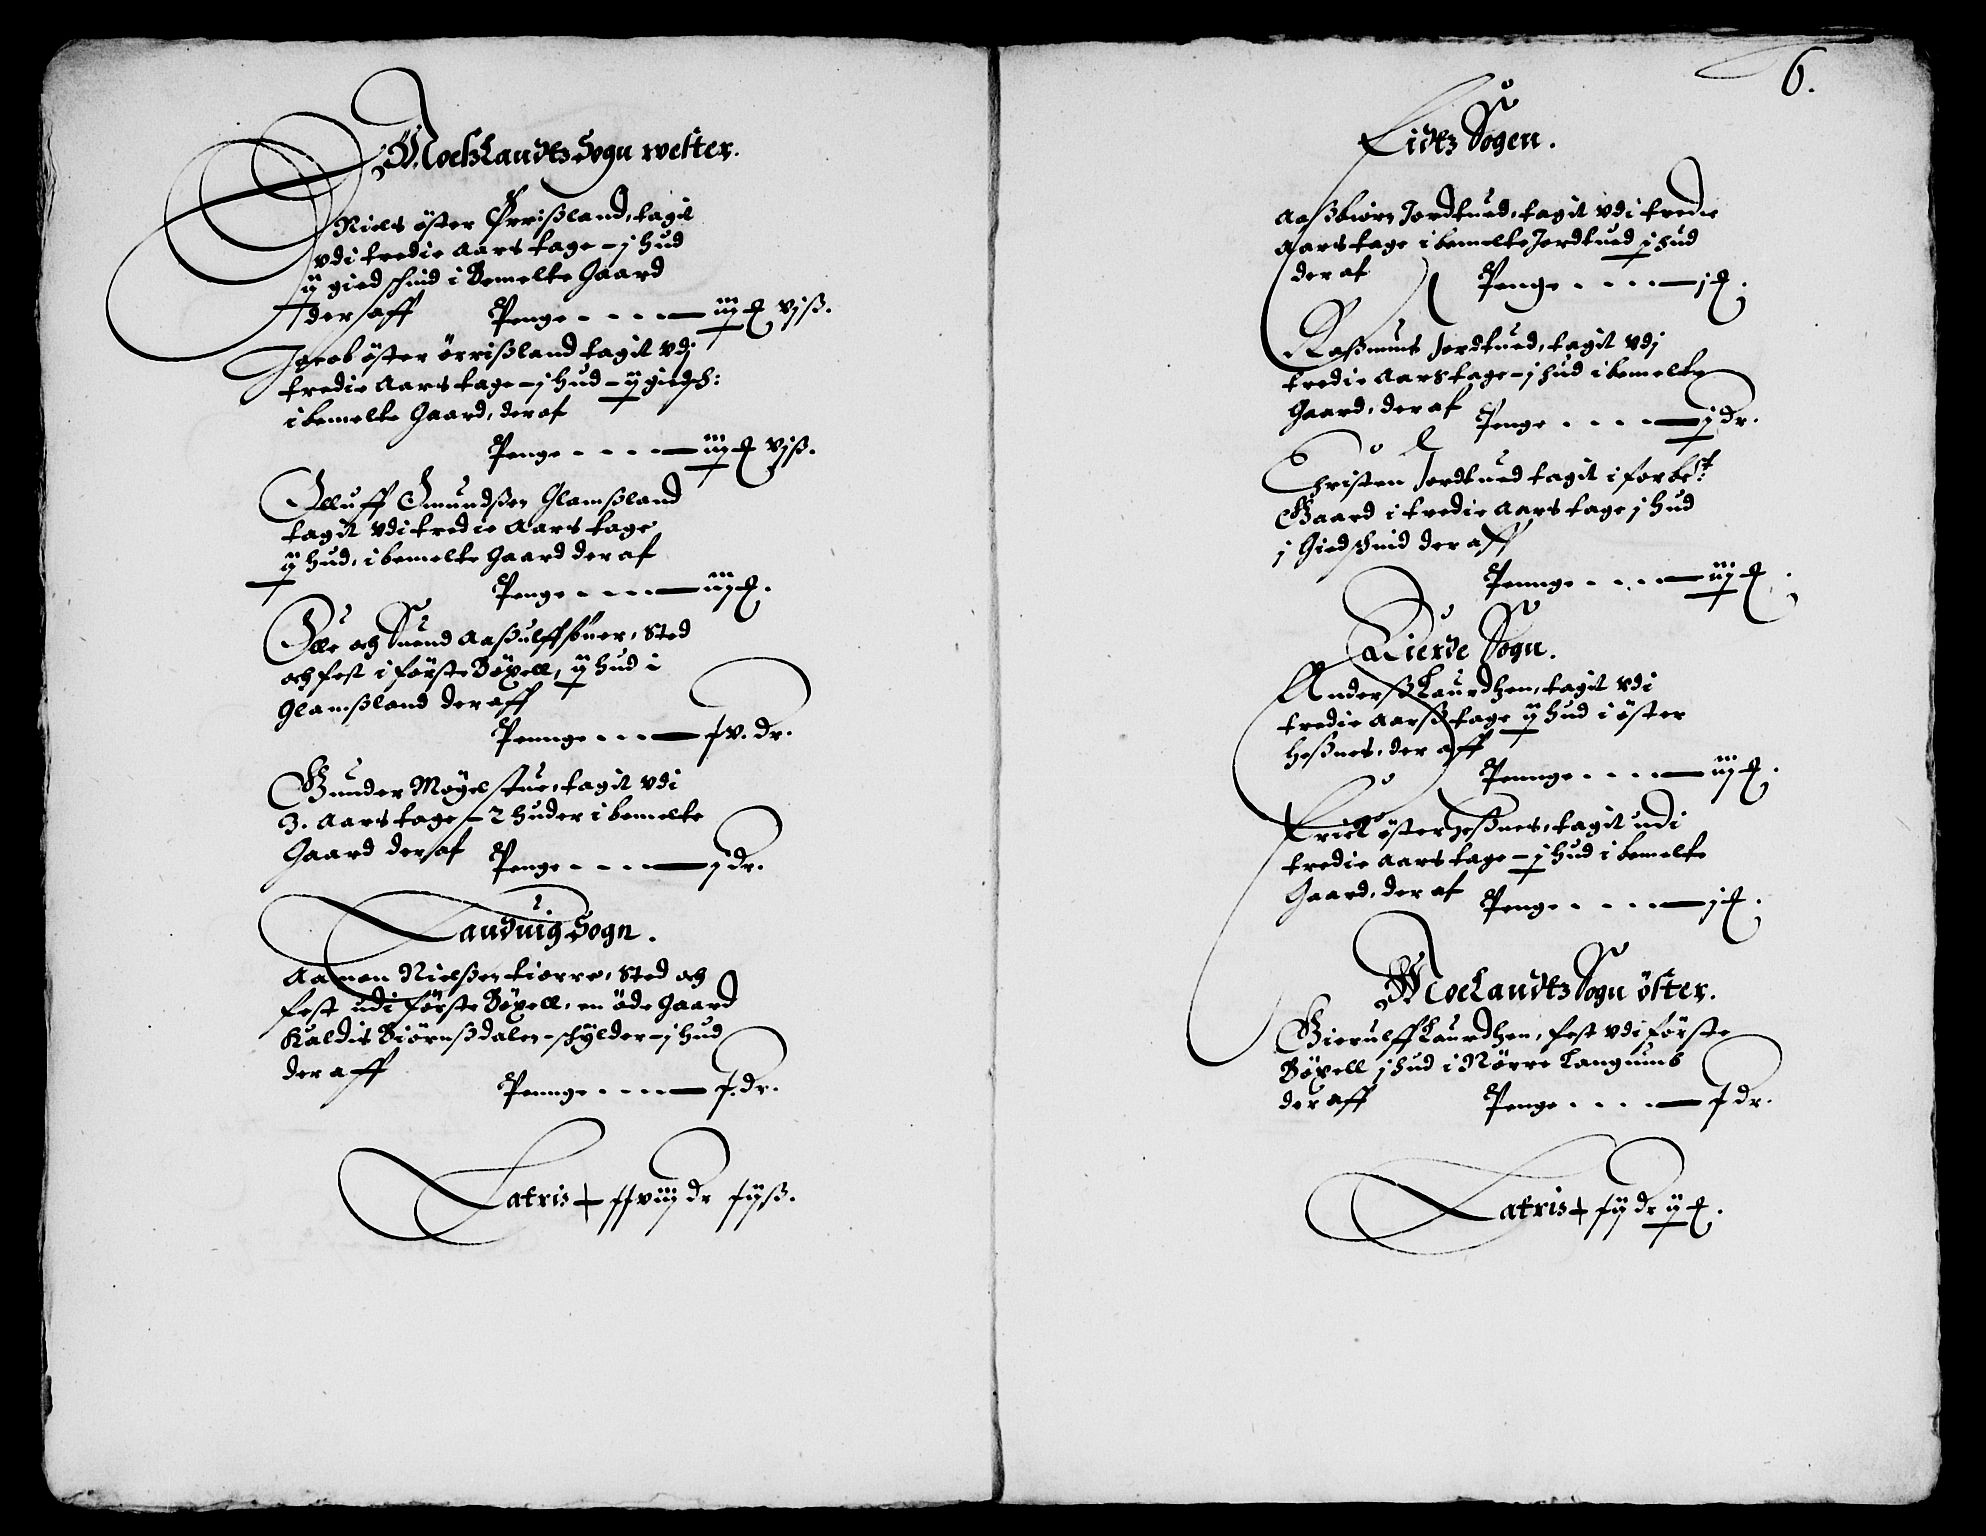 Moelandtz Sogn wester.
Niels öster Örrißland, tagit
vdi tredie Aars tage - j hud
ij giedschind i Bemelte Gaard
der aff Penge - - - - iij ℳ vjß.
Jacob öster örrißland tagit vdj
tredie Aars tage - j hud - ij giedsch:
i bemelte Gaard, der af
Penge - - - - iij ℳ vjß.
Olluff Omundßen Glamßland
tagit vdi tredie Aars tage
ij hud, i bemelte Gaard der af
Penge - - - - iij ℳ.
Olle och Suend Aaßulffsöner, Sted
och fest i förste Böxell, ij hud i
Glamßland der aff
Pennge - - - j v. dr.
Gunder Möyelstue, tagit vdi
3. Aars tage - 2 huder i bemelte
Gaard der af Penge - - - j dr.
Landuig Sogn.
Aamon Nielßen tiorre, Sted och
fest udi förste Böxell, en öde Gaard
Kaldis Biörnßdalen - schylder - j hud
der aff
Pennge - - - - j. dr.
Latris xxviij dr xijß.
6.
Eidtz Sogen.
Aaßbiörn Jordtued, tagit vdi tredie
Aars tage i bemelte Jordtued j hud
der af Penge - - - - j ℳ.
Raßmus Jordtued, tagit vdj
tredie Aars tage - j hud i bemelte
Gaard, der af Penge - - - - j dr.
Christen Jordtued tagit i forbe:t
Gaard i tredie Aars tage j hud
j Giedschind der aff
Pennge - - - - iij ℳ.
Fierde Sogn.
Anderß Laurdzen, tagit vdi
tredie Aarß tage ij hud i öster
Heßnes, der aff
Pennge - - - - iij ℳ.
Erick öster Heßnes, tagit udi
tredie Aars tage - j hud i bemelte
Gaard, der af Penge - - - - j ℳ.
Moelandtz Sogn öster.
Gierulff Laurdzen, fest vdi förste
Böxell j hud i Nörre Langumb
der aff Penge - - - - j dr.
Latris xij dr ij ℳ.